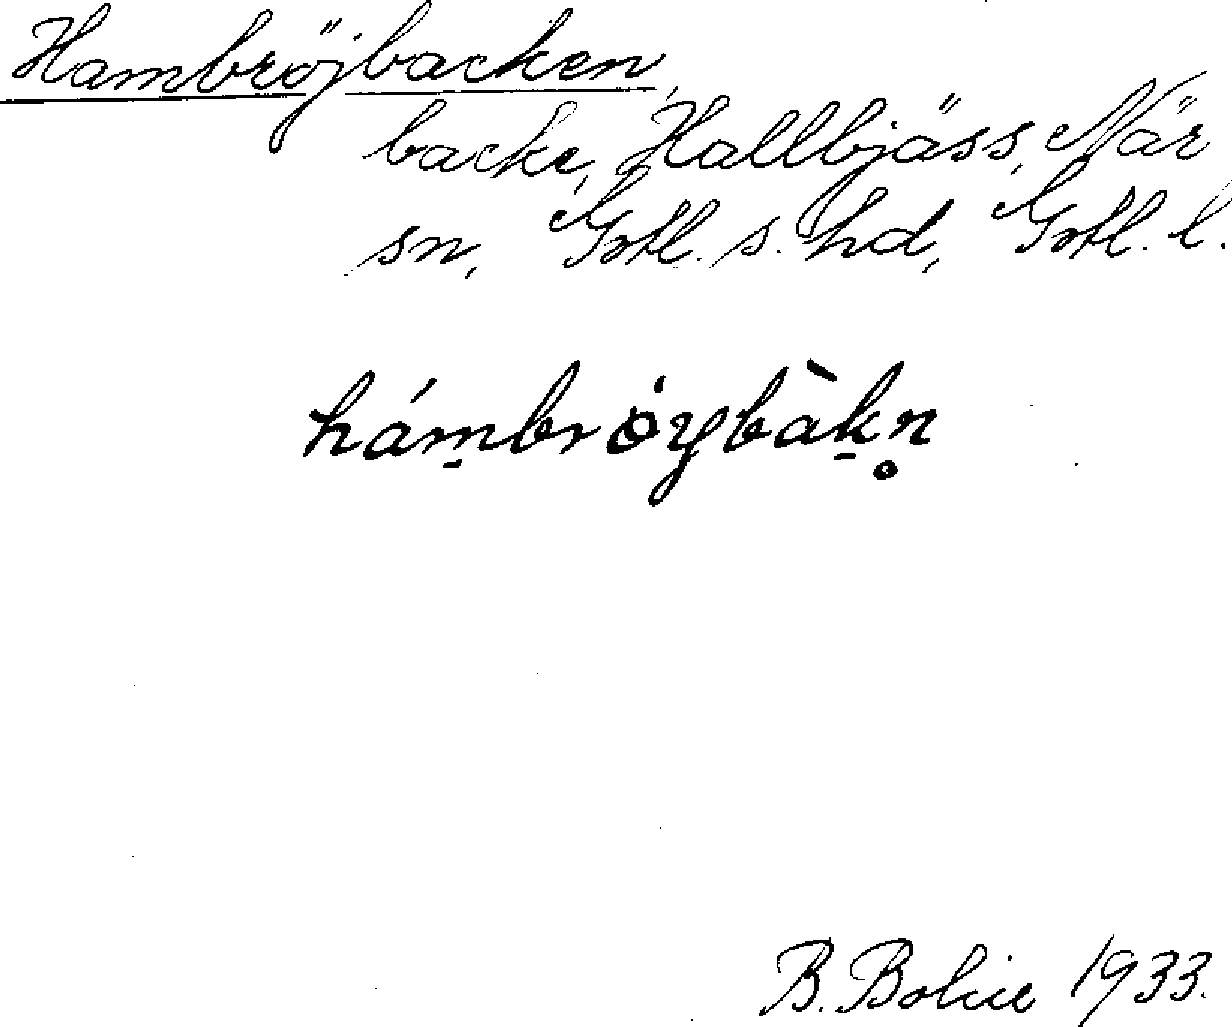 Hambröjbacken,
backe, Hallbjäss, När
sn, Gotl. s. hd, Gotl. l.
hám̱brȯybàḵn̥
B. Bolin 1933.